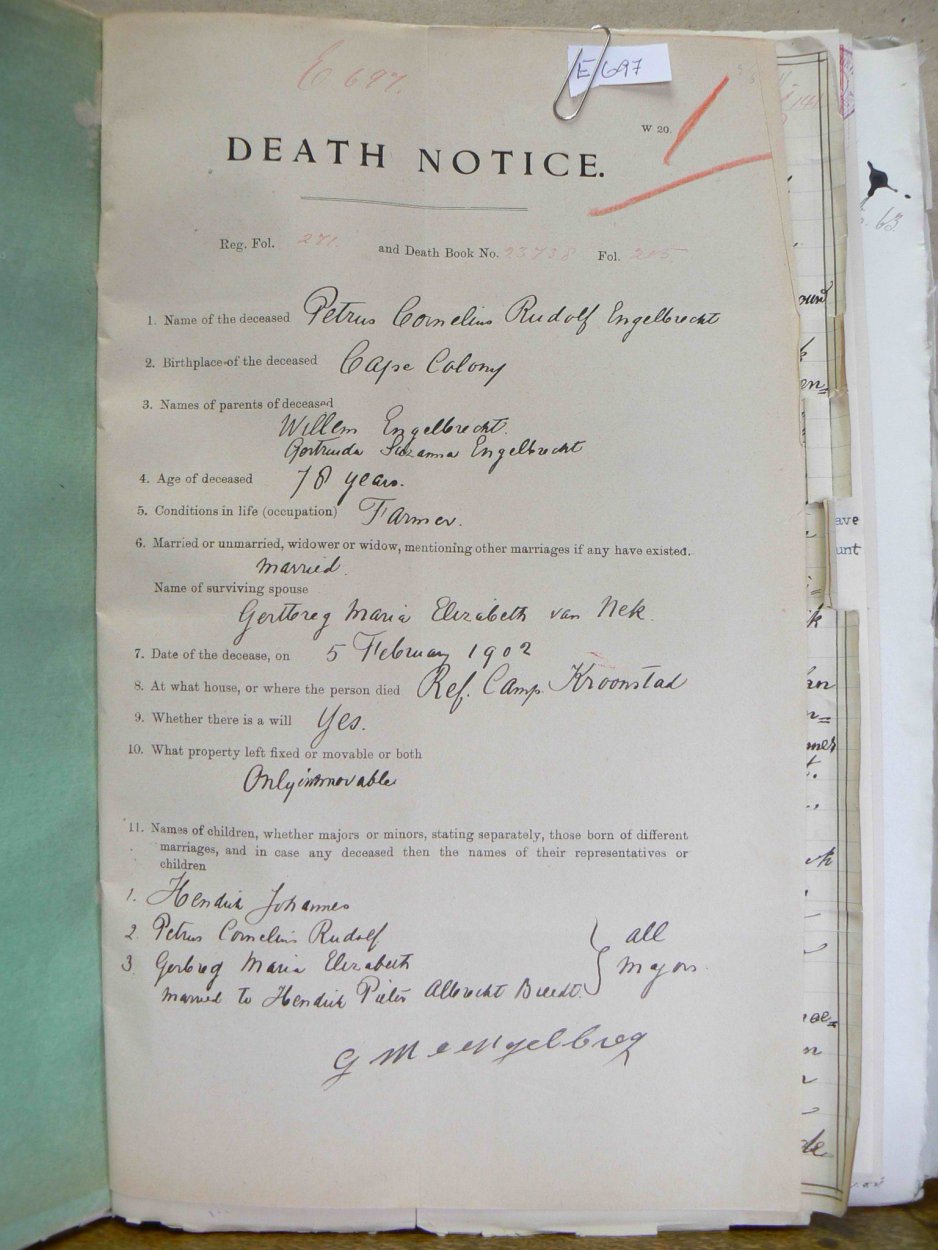 E 697.
E 697
W 20.
DEATH NOTICE.
Reg. Fol. 271. and Death Book No. 23738 Fol. 215
1. Name of the deceased Petrus Cornelius Rudolf Engelbrecht
2. Birthplace of the deceased Cape Colony
3. Names of parents of deceased
Willem Engelbrecht.
Gertruida Suzanna Engelbrecht
4. Age of deceased 78 years.
5. Conditions in life (occupation) Farmer.
6. Married or unmarried, widower or widow, mentioning other marriages if any have existed.
married.
Name of surviving spouse
Gertbreg Maria Elizabeth van Nek.
7. Date of the decease, on 5 February 1902
8. At what house, or where the person died Ref. Camp Kroonstad
9. Whether there is a will Yes.
10. What property left fixed or movable or both
Only immovable
11. Names of children, whether majors or minors, stating separately, those born of different
marriages, and in case any deceased then the names of their representatives or
children
1. Hendrik Johannes
2 Petrus Cornelius Rudolf all
3 Gerbreg Maria Elizabeth majors.
married to Hendrik Pieter Albrecht Breedt.
G M E engelbreg
63
ave
unt